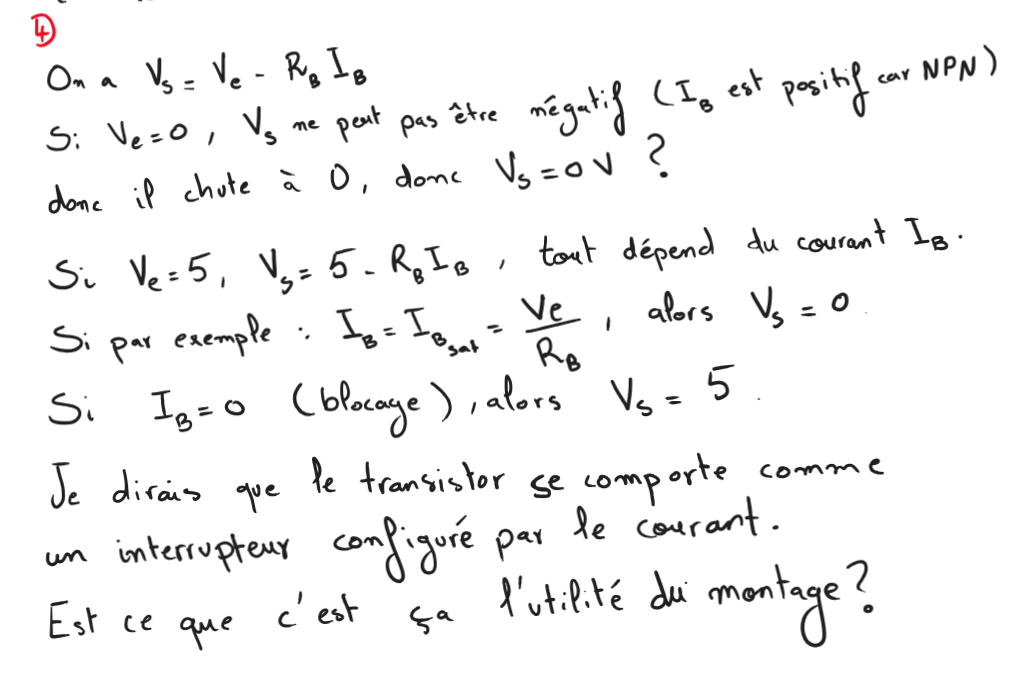 4
On a Vs = Ve - R_B I_B
Si Ve=0, Vs ne peut pas être négatif (I_B est positif car NPN)
donc il chute à 0, donc Vs = 0 V ?
Si Ve=5, Vs = 5 - R_B I_B, tout dépend du courant I_B.
Si par exemple : I_B = I_Bsat = Ve/R_B, alors Vs = 0
Si I_B = 0 (blocage), alors Vs = 5.
Je dirais que le transistor se comporte comme
un interrupteur configuré par le courant.
Est ce que c'est ça l'utilité du montage ?